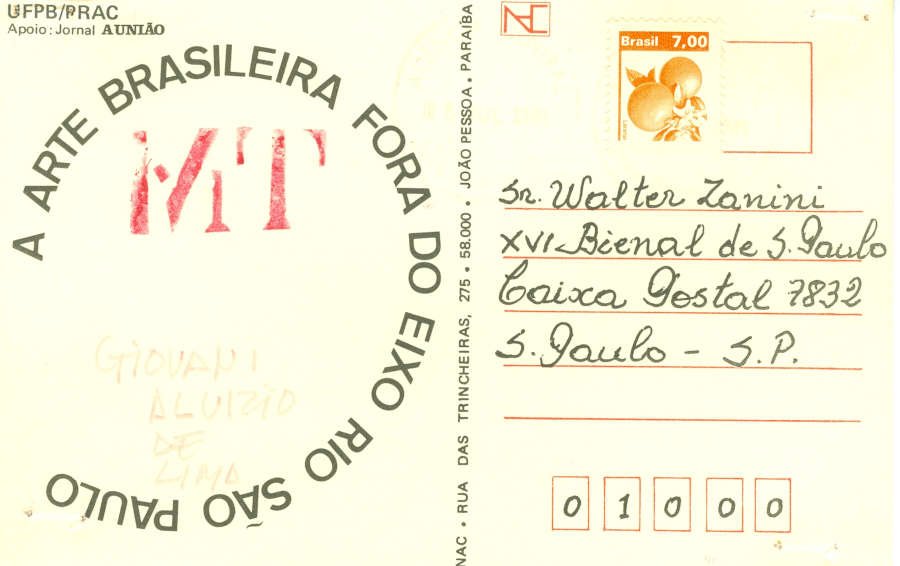 UFPB/PRAC
Apoio: Jornal A UNIÃO
A ARTE BRASILEIRA FORA DO EIXO RIO SÃO PAULO
MT
GIOVANI
ALUIZIO
DE
LIMA
NAC • RUA DAS TRINCHEIRAS, 275 • 58.000 • JOÃO PESSOA • PARAÍBA
NAC
Brasil 7,00
Sr. Walter Zanini
XVI-Bienal de S. Paulo
Caixa Postal 7832
S. Paulo - S.P.
0 1 0 0 0